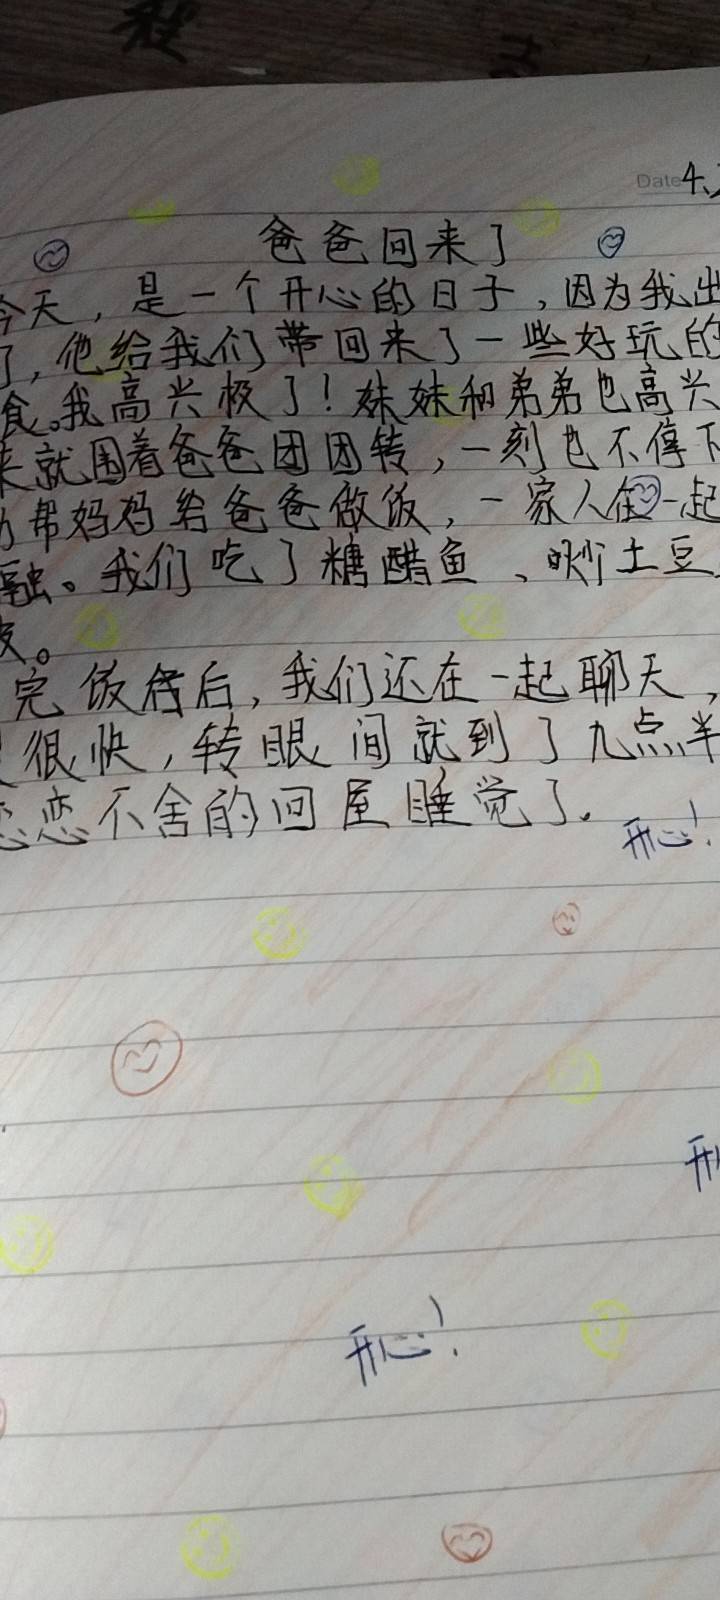 Date 4.
爸爸回来了
今天，是一个开心的日子，因为我出
了，他给我们带回来了一些好玩的
食。我高兴极了！妹妹和弟弟也高兴
来就围着爸爸团团转，一刻也不停下
帮妈妈给爸爸做饭，一家人在一起
融。我们吃了糖醋鱼、炒土豆
皮。
完饭后，我们还在一起聊天，
很快，转眼间就到了九点半
恋恋不舍的回屋睡觉了.
开心！
开心！